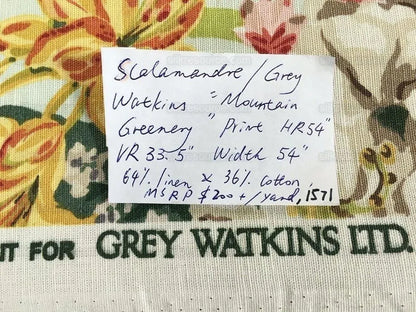 Scalamandre / Grey
Watkins "Mountain
Greenery" Print HR 54"
VR 33.5" Width 54"
64% linen x 36% cotton,
MSRP $200+/yard, 1571
NT FOR GREY WATKINS LTD.